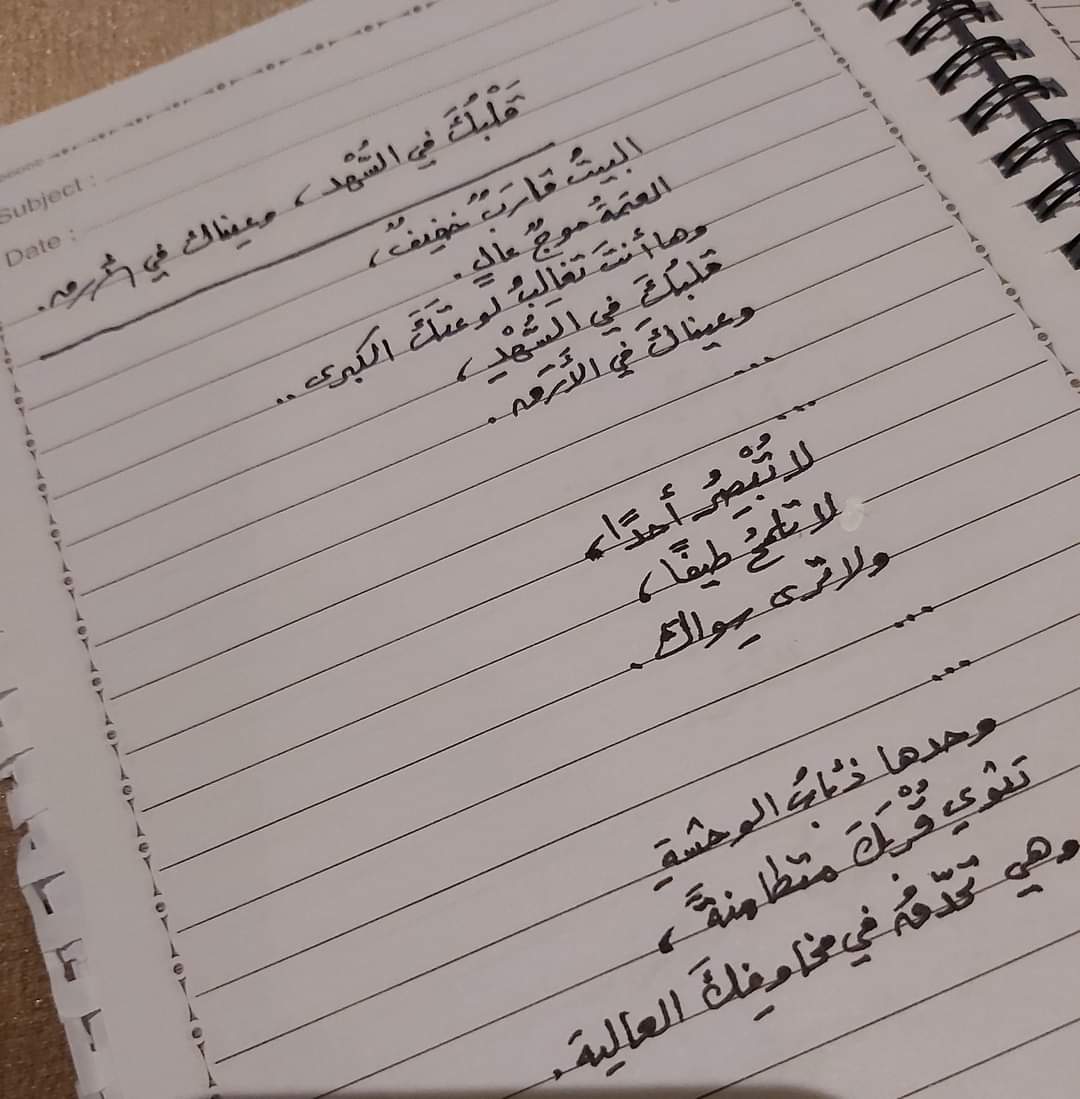 Subject :
Date :
قَلْبُكَ في السُّهْد، وعيناك في الأرق.
البيتُ قاربٌ خفيفٌ،
العتمةُ موجٌ عالٍ.
وها أنتَ تغالبُ لوعتَكَ الكبرى ..
قلبُكَ في السُّهْدِ،
وعيناكَ في الأَرَق.
...
...
لا تُبْصِرُ أحدًا،
لا تلمحُ طيفًا،
ولا ترى سواك.
...
...
وحدها ذئابُ الوحشةِ
تثوي قُرْبَكَ متطامنةً،
وهي تحدّقُ في مخاوفِكَ العالية.